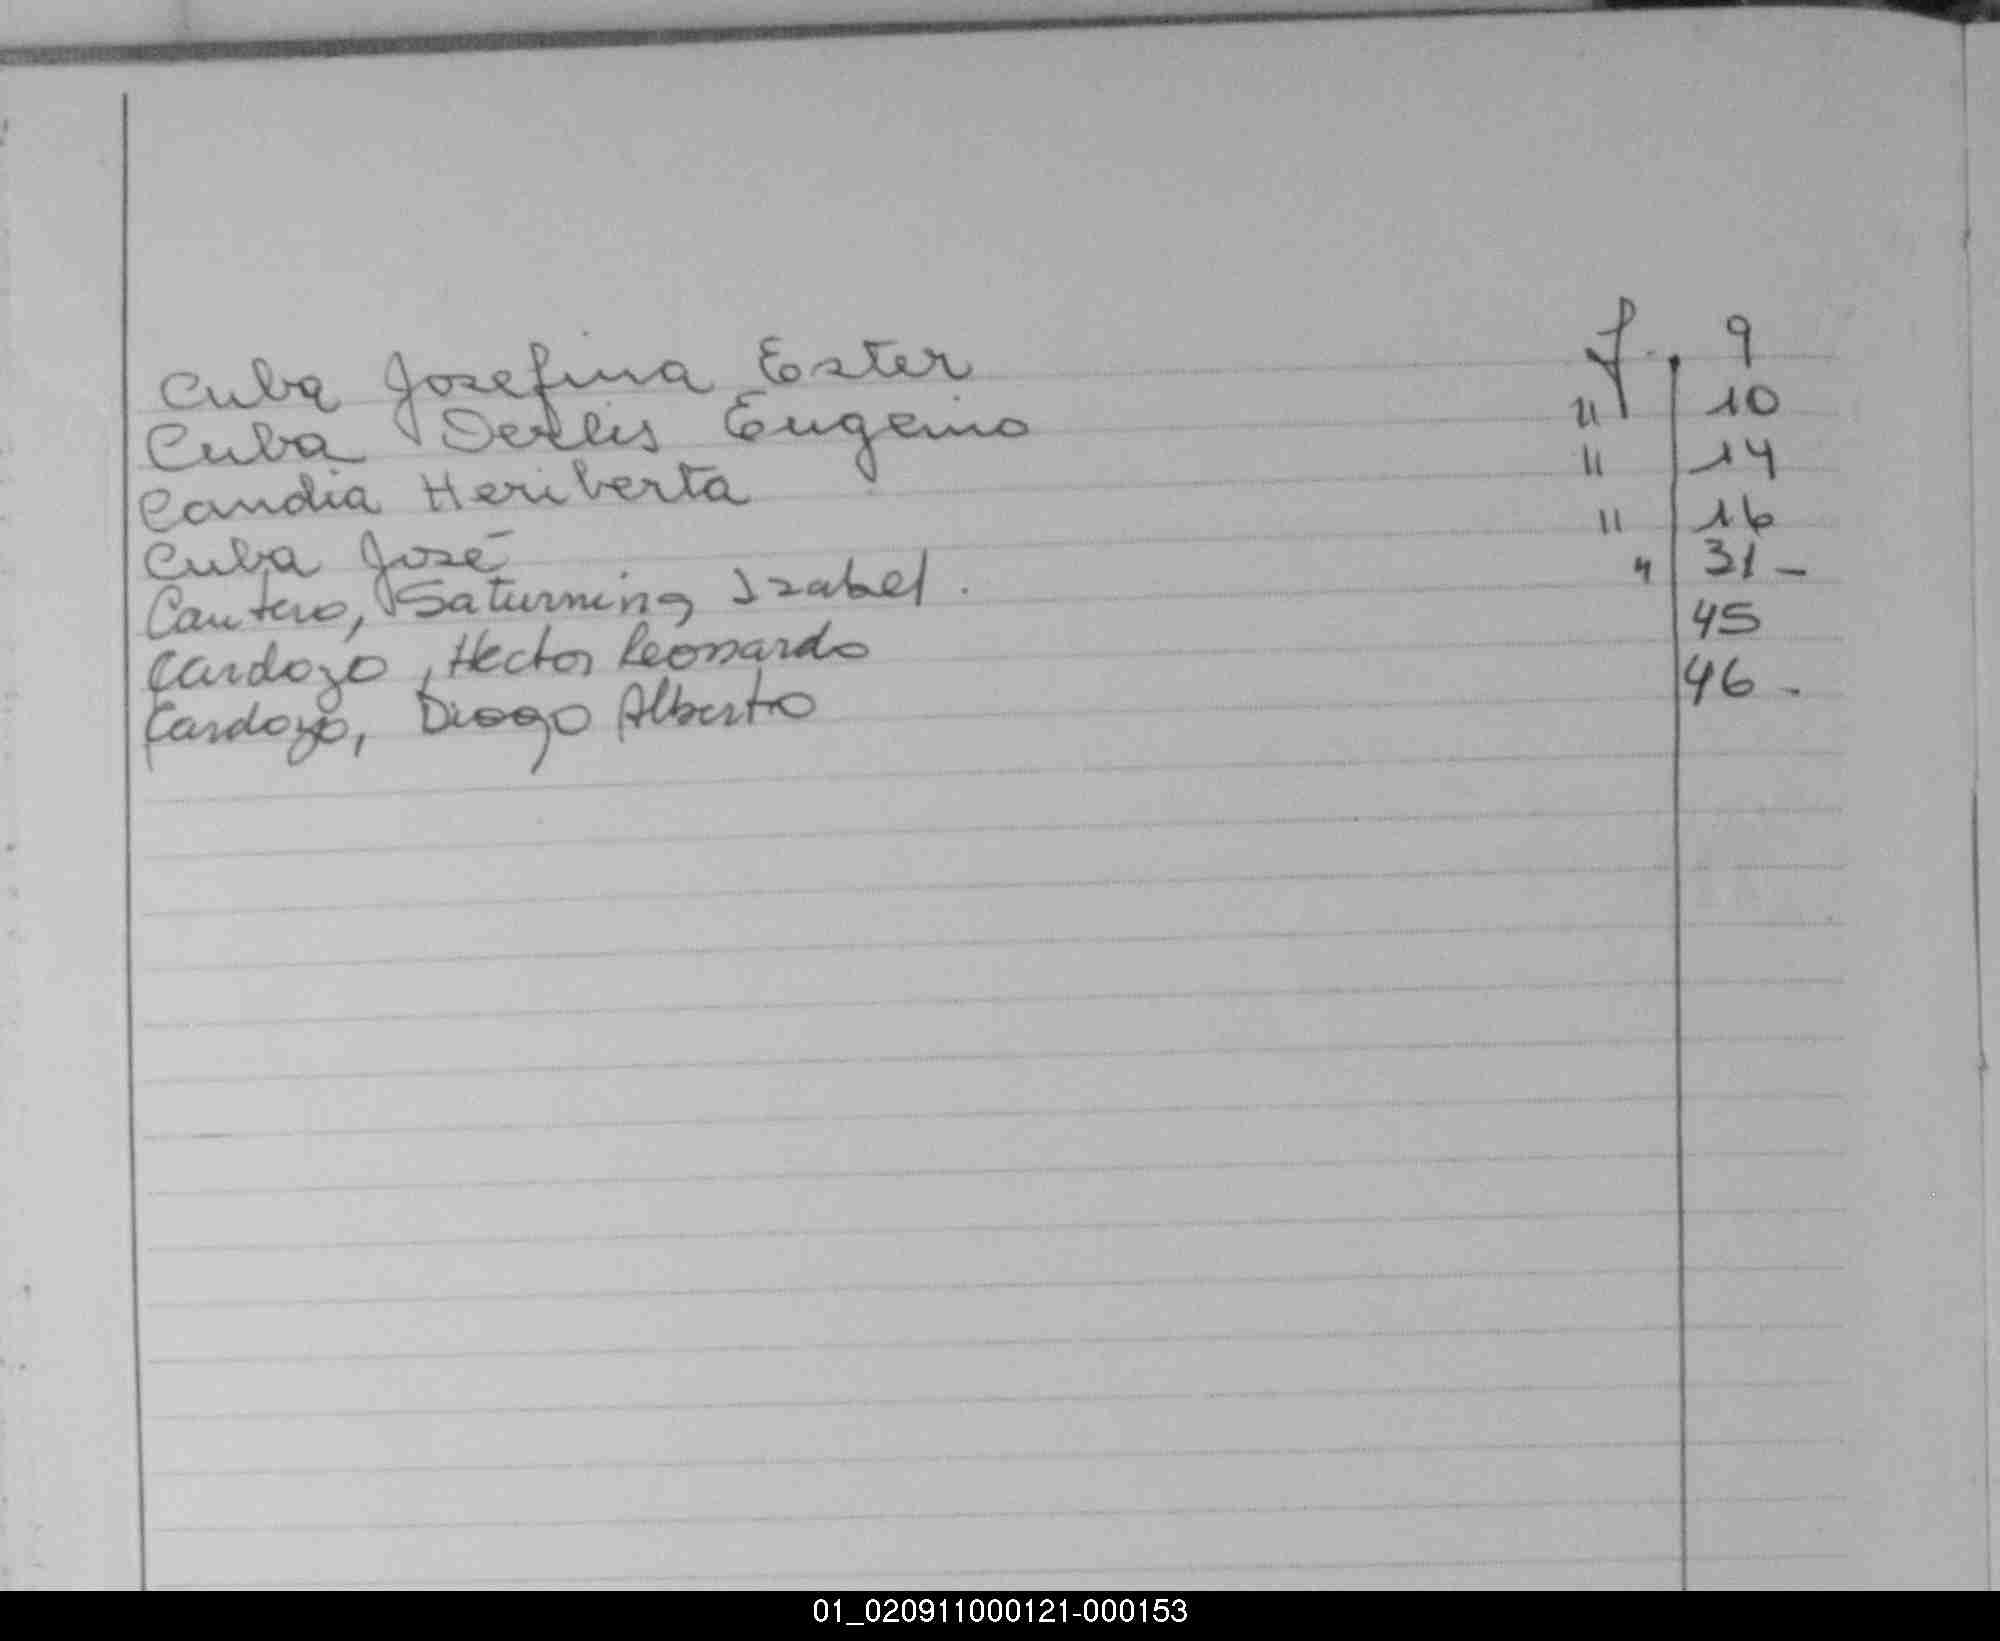 Cuba Josefina Ester f. 9
Cuba Derlis Eugenio " 10
Candia Heriberta " 14
Cuba José " 16
Cantero, Saturnina Izabel. " 31 -
Cardozo, Hector Leonardo 45
Cardozo, Diogo Alberto 46 -
01_020911000121-000153